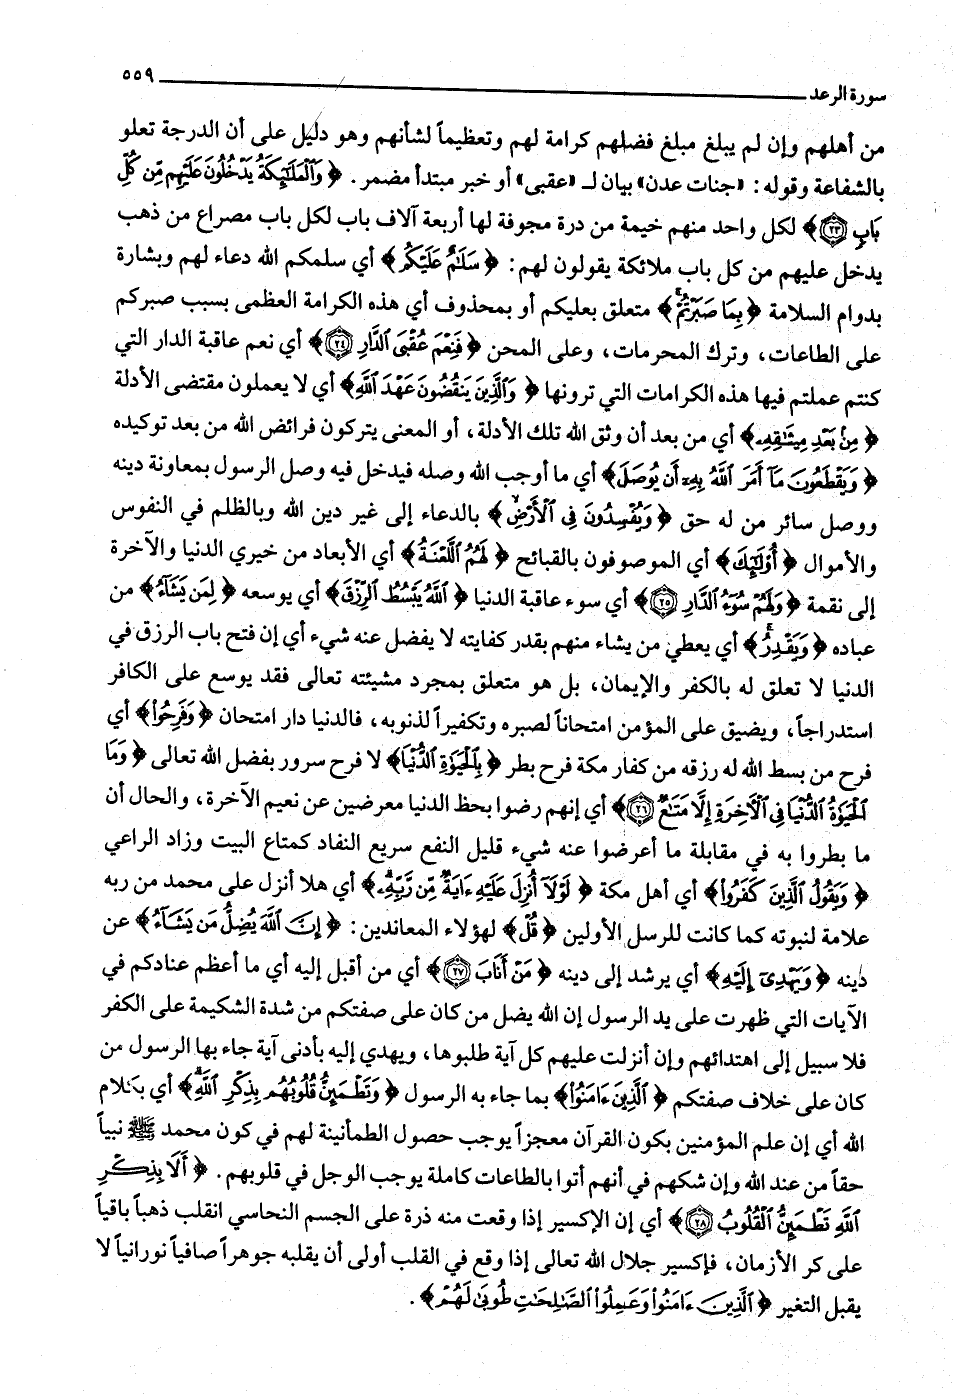 سورة الرعد ٥٥٩
من أهلهم وإن لم يبلغ مبلغ فضلهم كرامة لهم وتعظيماً لشأنهم وهو دليل على أن الدرجة تعلو
بالشفاعة وقوله: «جنات عدن» بيان لـ «عقبى» أو خبر مبتدأ مضمر. ﴿ وَٱلْمَلَٰٓئِكَةُ يَدْخُلُونَ عَلَيْهِم مِّن كُلِّ
بَابٍ ٢٣﴾ لكل واحد منهم خيمة من درة مجوفة لها أربعة آلاف باب لكل باب مصراع من ذهب
يدخل عليهم من كل باب ملائكة يقولون لهم: ﴿ سَلَٰمٌ عَلَيْكُم ﴾ أي سلمكم الله دعاء لهم وبشارة
بدوام السلامة ﴿ بِمَا صَبَرْتُمْ ﴾ متعلق بعليكم أو بمحذوف أي هذه الكرامة العظمى بسبب صبركم
على الطاعات، وترك المحرمات، وعلى المحن ﴿ فَنِعْمَ عُقْبَى ٱلدَّارِ ٢٤﴾ أي نعم عاقبة الدار التي
كنتم عملتم فيها هذه الكرامات التي ترونها ﴿ وَٱلَّذِينَ يَنقُضُونَ عَهْدَ ٱللَّهِ ﴾ أي لا يعملون مقتضى الأدلة
﴿ مِنۢ بَعْدِ مِيثَٰقِهِۦ ﴾ أي من بعد أن وثق الله تلك الأدلة، أو المعنى يتركون فرائض الله من بعد توكيده
﴿ وَيَقْطَعُونَ مَآ أَمَرَ ٱللَّهُ بِهِۦٓ أَن يُوصَلَ ﴾ أي ما أوجب الله وصله فيدخل فيه وصل الرسول بمعاونة دينه
ووصل سائر من له حق ﴿ وَيُفْسِدُونَ فِى ٱلْأَرْضِ ﴾ بالدعاء إلى غير دين الله وبالظلم في النفوس
والأموال ﴿ أُو۟لَٰٓئِكَ ﴾ أي الموصوفون بالقبائح ﴿ لَهُمُ ٱللَّعْنَةُ ﴾ أي الأبعاد من خيري الدنيا والآخرة
إلى نقمة ﴿ وَلَهُمْ سُوٓءُ ٱلدَّارِ ٢٥﴾ أي سوء عاقبة الدنيا ﴿ ٱللَّهُ يَبْسُطُ ٱلرِّزْقَ ﴾ أي يوسعه ﴿ لِمَن يَشَآءُ ﴾ من
عباده ﴿ وَيَقْدِرُ ﴾ أي يعطي من يشاء منهم بقدر كفايته لا يفضل عنه شيء أي إن فتح باب الرزق في
الدنيا لا تعلق له بالكفر والإيمان، بل هو متعلق بمجرد مشيئته تعالى فقد يوسع على الكافر
استدراجاً، ويضيق على المؤمن امتحاناً لصبره وتكفيراً لذنوبه، فالدنيا دار امتحان ﴿ وَفَرِحُوا۟ ﴾ أي
فرح من بسط الله له رزقه من كفار مكة فرح بطر ﴿ بِٱلْحَيَوٰةِ ٱلدُّنْيَا ﴾ لا فرح سرور بفضل الله تعالى ﴿ وَمَا
ٱلْحَيَوٰةُ ٱلدُّنْيَا فِى ٱلْآخِرَةِ إِلَّا مَتَٰعٌ ٢٦﴾ أي إنهم رضوا بحظ الدنيا معرضين عن نعيم الآخرة، والحال أن
ما بطروا به في مقابلة ما أعرضوا عنه شيء قليل النفع سريع النفاد كمتاع البيت وزاد الراعي
﴿ وَيَقُولُ ٱلَّذِينَ كَفَرُوا۟ ﴾ أي أهل مكة ﴿ لَوْلَآ أُنزِلَ عَلَيْهِ ءَايَةٌ مِّن رَّبِّهِۦ ﴾ أي هلا أنزل على محمد من ربه
علامة لنبوته كما كانت للرسل الأولين ﴿ قُلْ ﴾ لهؤلاء المعاندين: ﴿ إِنَّ ٱللَّهَ يُضِلُّ مَن يَشَآءُ ﴾ عن
دينه ﴿ وَيَهْدِىٓ إِلَيْهِ ﴾ أي يرشد إلى دينه ﴿ مَنْ أَنَابَ ٢٧﴾ أي من أقبل إليه أي ما أعظم عنادكم في
الآيات التي ظهرت على يد الرسول إن الله يضل من كان على صفتكم من شدة الشكيمة على الكفر
فلا سبيل إلى اهتدائهم وإن أنزلت عليهم كل آية طلبوها، ويهدي إليه بأدنى آية جاء بها الرسول من
كان على خلاف صفتكم ﴿ ٱلَّذِينَ ءَامَنُوا۟ ﴾ بما جاء به الرسول ﴿ وَتَطْمَئِنُّ قُلُوبُهُم بِذِكْرِ ٱللَّهِ ﴾ أي بكلام
الله أي إن علم المؤمنين بكون القرآن معجزاً يوجب حصول الطمأنينة لهم في كون محمد ﷺ نبياً
حقاً من عند الله وإن شكهم في أنهم أتوا بالطاعات كاملة يوجب الوجل في قلوبهم. ﴿ أَلَا بِذِكْرِ
ٱللَّهِ تَطْمَئِنُّ ٱلْقُلُوبُ ٢٨﴾ أي إن الإكسير إذا وقعت منه ذرة على الجسم النحاسي انقلب ذهباً باقياً
على كر الأزمان، فإكسير جلال الله تعالى إذا وقع في القلب أولى أن يقلبه جوهراً صافياً نورانياً لا
يقبل التغير ﴿ ٱلَّذِينَ ءَامَنُوا۟ وَعَمِلُوا۟ ٱلصَّٰلِحَٰتِ طُوبَىٰ لَهُمْ ﴾.